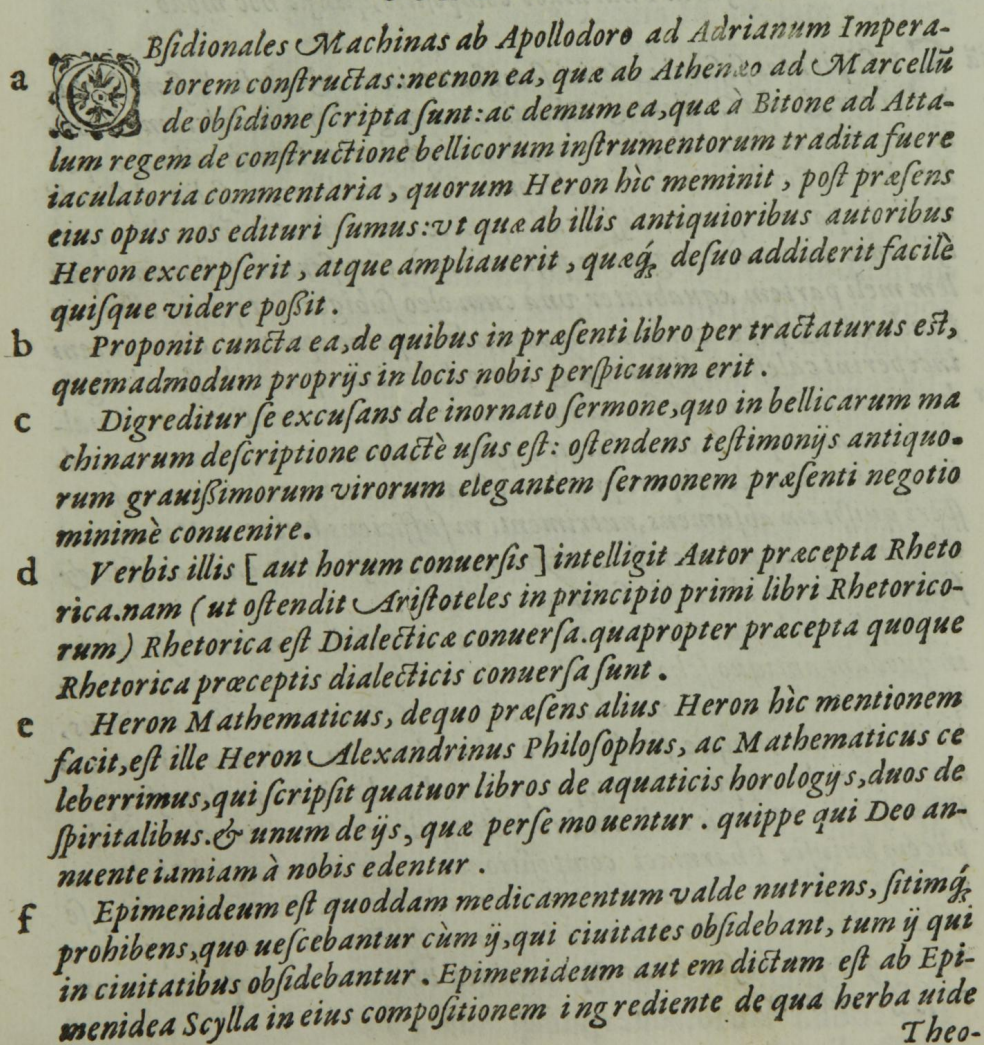 OBſidionales Machinas ab Apollodoro ad Adrianum Impera-
a torem conſtructas: necnon ea, quæ ab Athenæo ad Marcellū
de obſidione ſcripta ſunt: ac demum ea, quæ à Bitone ad Atta-
lum regem de conſtructione bellicorum inſtrumentorum tradita fuere
iaculatoria commentaria, quorum Heron hìc meminit, poſt præſens
eius opus nos edituri ſumus: vt quæ ab illis antiquioribus autoribus
Heron excerpſerit, atque ampliauerit, quæq́; deſuo addiderit facilè
quiſque videre poßit.
b Proponit cuncta ea, de quibus in præſenti libro per tractaturus eſt,
quemadmodum proprijs in locis nobis perſpicuum erit.
c Digreditur ſe excuſans de inornato ſermone, quo in bellicarum ma
chinarum deſcriptione coactè uſus eſt: oſtendens teſtimonijs antiquo-
rum grauißimorum virorum elegantem ſermonem præſenti negotio
minimè conuenire.
d Verbis illis [aut horum conuerſis] intelligit Autor præcepta Rheto
rica. nam (ut oſtendit Ariſtoteles in principio primi libri Rhetorico-
rum) Rhetorica eſt Dialecticæ conuerſa. quapropter præcepta quoque
Rhetorica præceptis dialecticis conuerſa ſunt.
e Heron Mathematicus, dequo præſens alius Heron hìc mentionem
facit, eſt ille Heron Alexandrinus Philoſophus, ac Mathematicus ce
leberrimus, qui ſcripſit quatuor libros de aquaticis horologijs, duos de
ſpiritalibus. & unum de ijs, quæ perſe mouentur. quippe qui Deo an-
nuente iamiam à nobis edentur.
f Epimenideum eſt quoddam medicamentum valde nutriens, ſitimq́;
prohibens, quo ueſcebantur cùm ij, qui ciuitates obſidebant, tum ij qui
in ciuitatibus obſidebantur. Epimenideum aut em dictum eſt ab Epi-
menidea Scylla in eius compoſitionem ingrediente de qua herba uide
Theo-